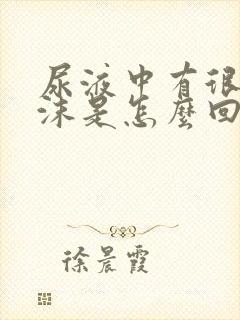 尿液中有很
沫是怎麼回
徐晨霞